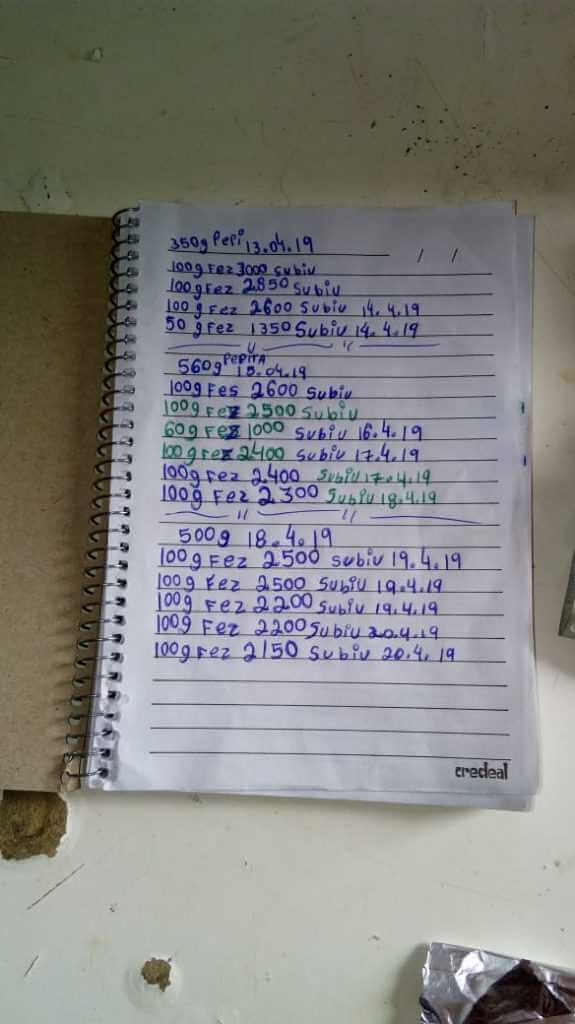 350g Pepi 13.04.19
/ /
100g Fez 3000 Subiu
100g Fez 2850 Subiu
100g Fez 2600 Subiu 14.4.19
50g Fez 1350 Subiu 14.4.19
560g PEPITA 15.04.19
100g Fes 2600 Subiu
100g Fez 2500 Subiu
60g Fez 1000 Subiu 16.4.19
100g Fez 2400 Subiu 17.4.19
100g Fez 2400 Subiu 17.4.19
100g Fez 2300 Subiu 18.4.19
500g 18.4.19
100g Fez 2500 Subiu 19.4.19
100g Fez 2500 Subiu 19.4.19
100g Fez 2200 Subiu 19.4.19
100g Fez 2200 Subiu 20.4.19
100g Fez 2150 Subiu 20.4.19
credeal